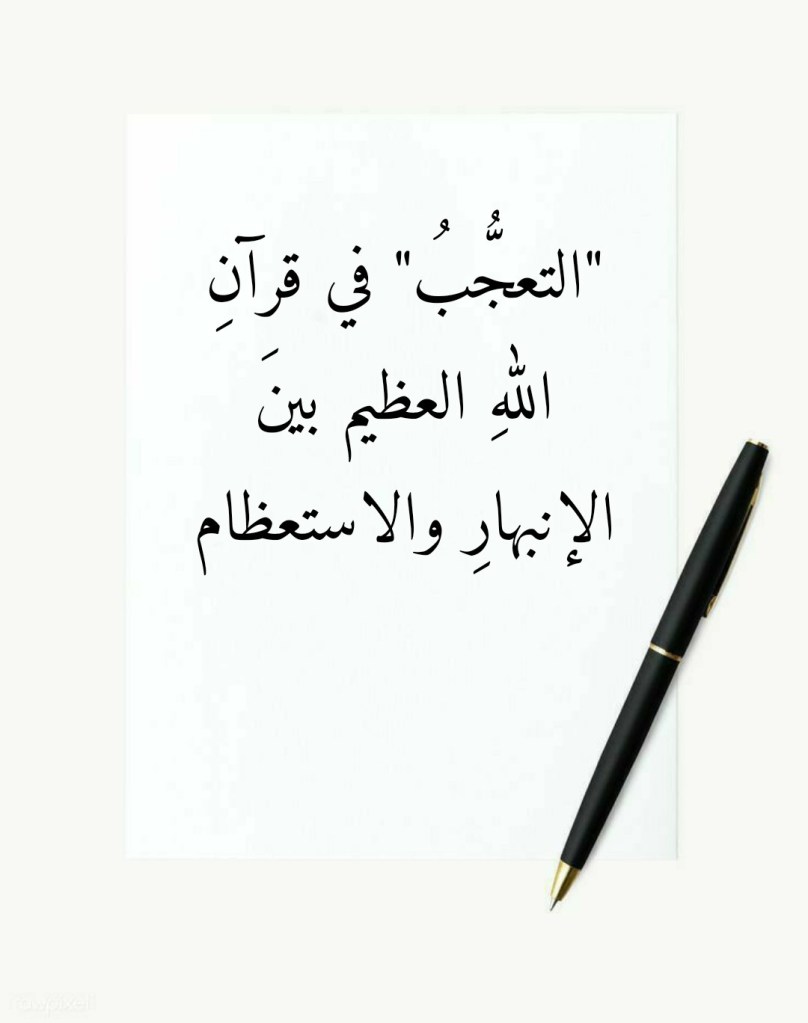 "التعجُّبُ" في قرآنِ
اللهِ العظيم بينَ
الإنبهارِ والاستعظام
rawpixel